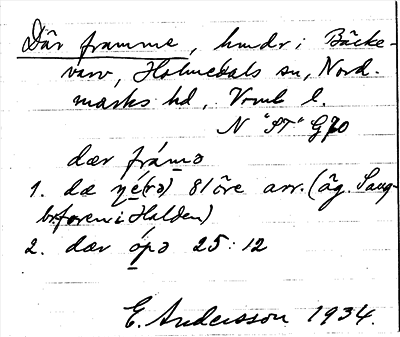 Där framme, hmdr i Bäcke-
varv, Holmedals sn, Nord-
marks hd, Vrml l.
N "ST" G70
dær frámə
1. dæ né(rə) 81 öre arr. (äg. Saug-
brforen i Halden)
2. dær ópə 25:12
E. Andersson 1934.